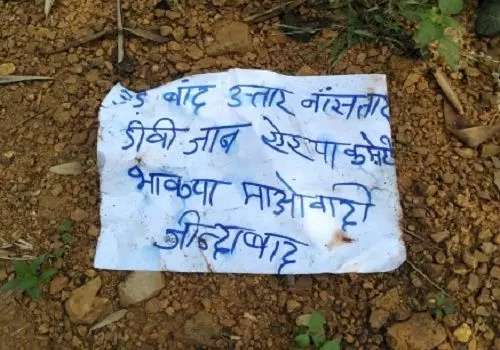 बांद उत्तार बांसतार
डीवी जान कमेटी
भाकपा माओवादी
जीन्दाबाद